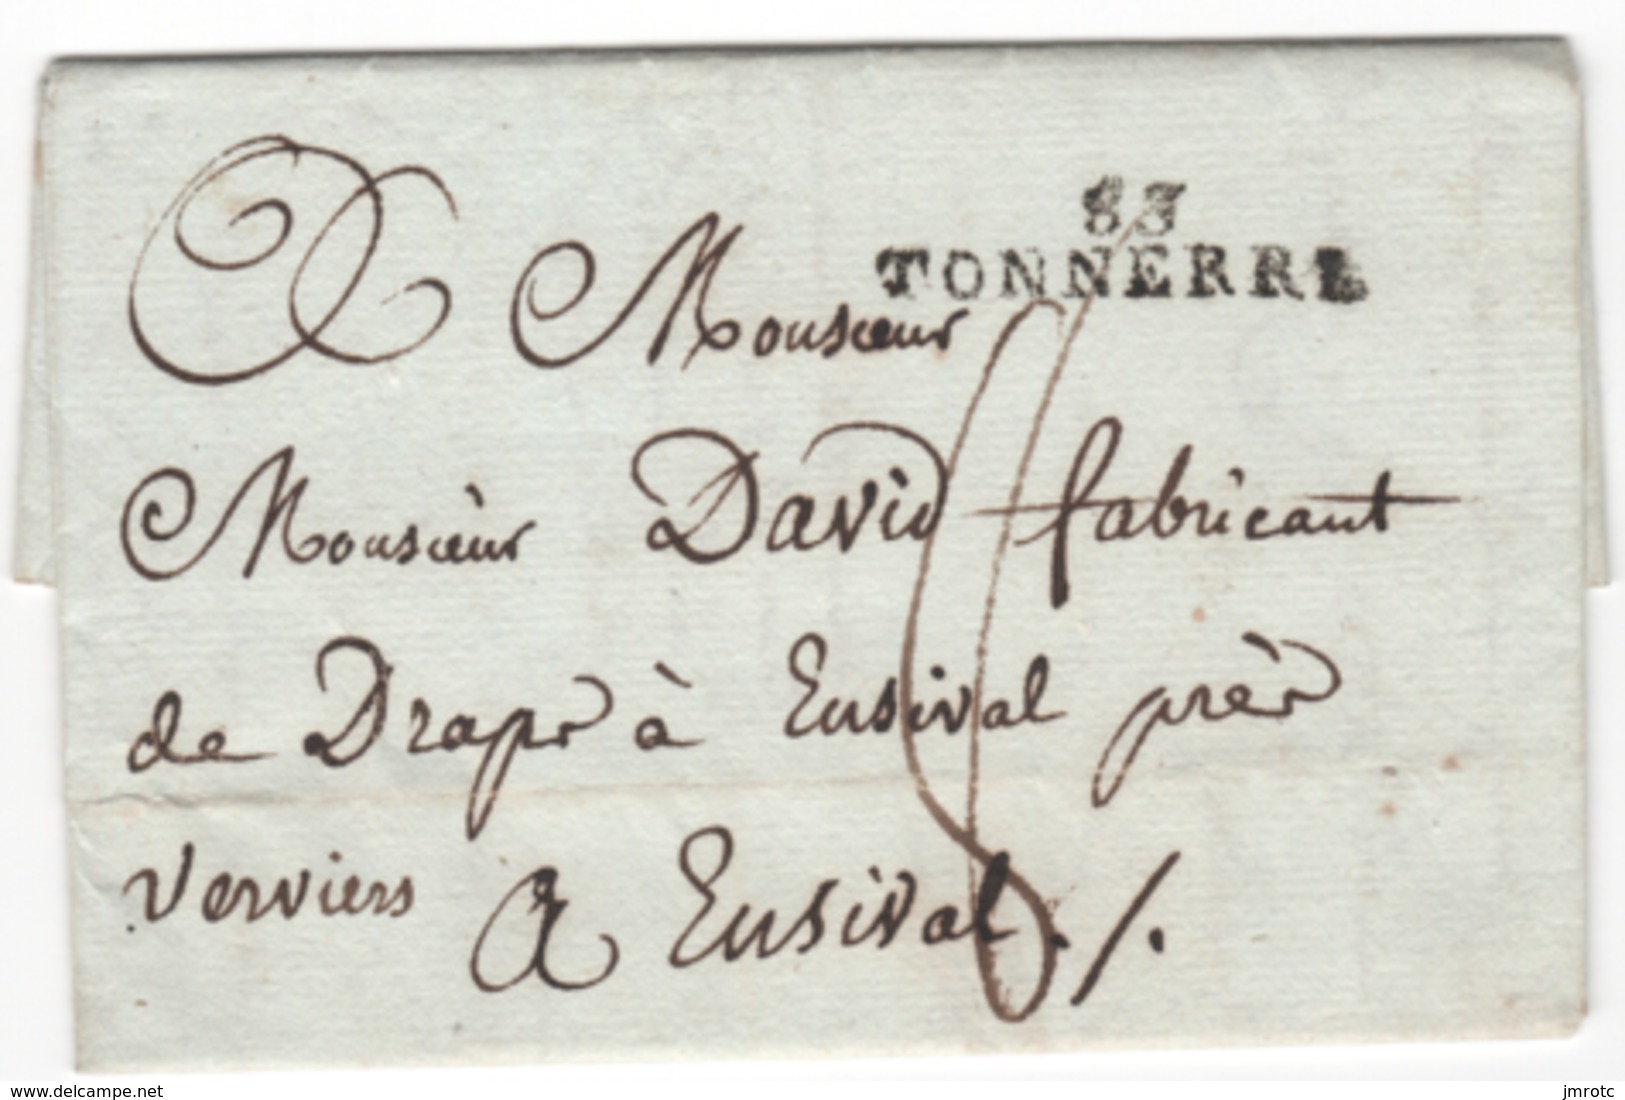 83
TONNERRE
Monsieur
Monsieur David fabricant
de Draps à Ensival près
Verviers
A Ensival ./.
delcampe.net
jmrotc